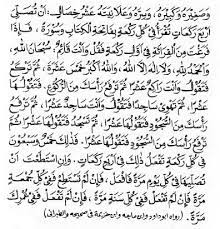 وَصَغِيْرَهُ وَكَبِيْرَهُ، وَسِرَّهُ وَعَلَانِيَتَهُ عَشْرُ خِصَالٍ: أَنْ تُصَلِّيَ
أَرْبَعَ رَكَعَاتٍ تَقْرَأُ فِيْ كُلِّ رَكْعَةٍ بِفَاتِحَةِ الْكِتَابِ وَسُوْرَةٍ، فَإِذَا
فَرَغْتَ مِنَ الْقِرَاءَةِ فِيْ أَوَّلِ رَكْعَةٍ فَقُلْ وَأَنْتَ قَائِمٌ: سُبْحَانَ اللهِ،
وَالْحَمْدُ لِلّٰهِ، وَلَا إِلٰهَ إِلَّا اللهُ، وَاللهُ أَكْبَرُ خَمْسَ عَشْرَةَ، ثُمَّ تَرْكَعُ
فَتَقُوْلُهَا وَأَنْتَ رَاكِعٌ عَشْرًا، ثُمَّ تَرْفَعُ رَأْسَكَ مِنَ الرُّكُوْعِ، فَتَقُوْلُهَا
عَشْرًا، ثُمَّ تَهْوِيْ سَاجِدًا فَتَقُوْلُهَا وَأَنْتَ سَاجِدًا عَشْرًا، ثُمَّ تَرْفَعُ
رَأْسَكَ مِنَ السُّجُوْدِ فَتَقُوْلُهَا عَشْرًا، ثُمَّ تَسْجُدُ فَتَقُوْلُهَا عَشْرًا، ثُمَّ
تَرْفَعُ رَأْسَكَ مِنَ السُّجُوْدِ فَتَقُوْلُهَا عَشْرًا. فَذٰلِكَ خَمْسٌ وَسَبْعُوْنَ
فِيْ كُلِّ رَكْعَةٍ تَفْعَلُ ذٰلِكَ فِيْ أَرْبَعِ رَكَعَاتٍ. وَإِنِ اسْتَطَعْتَ أَنْ
تُصَلِّيَهَا فِيْ كُلِّ يَوْمٍ مَرَّةً فَافْعَلْ، فَإِنْ لَمْ تَسْتَطِعْ فَفِيْ كُلِّ جُمُعَةٍ
مَرَّةً، فَإِنْ لَمْ تَفْعَلْ فَفِيْ كُلِّ سَنَةٍ مَرَّةً، فَإِنْ لَمْ تَفْعَلْ فَفِيْ عُمُرِكَ
مَرَّةً (رواه أبو داود وابن ماجه وابن خزيمة في صحيحه والطبراني)